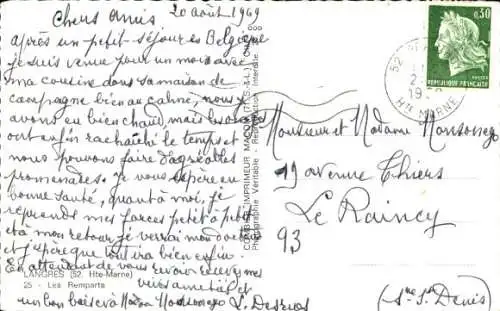 Chers Amis, 20 août 1969
après un petit séjour en Belgique
je suis venue pour un mois avec
ma cousine dans sa maison de
campagne bien au calme, nous
avons eu bien chaud, mais les orages
ont enfin rachaichi le temps et
nous pouvons faire d'agréables
promenades. Je vous espère en
bonne santé, quant à moi, je
reprends mes forces petit à petit
et à mon retour je verrai mon docteur
et j'espère que tout ira bien enfin.
En attendant de vous revoir recevez mes
vives amitiés et
un bon baiser à
L. Desrues
LANGRES (52. Hte-Marne)
25 - Les Remparts
COMBIER IMPRIMEUR MACON (S.-&-L.)
Photographie Véritable - Reproduction Interdite
0,30
POSTES
REPUBLIQUE FRANÇAISE
52
HTE MARNE
Monsieur et Madame Monsonego
19 avenue Thiers
Le Raincy
93
(Sne St Denis)